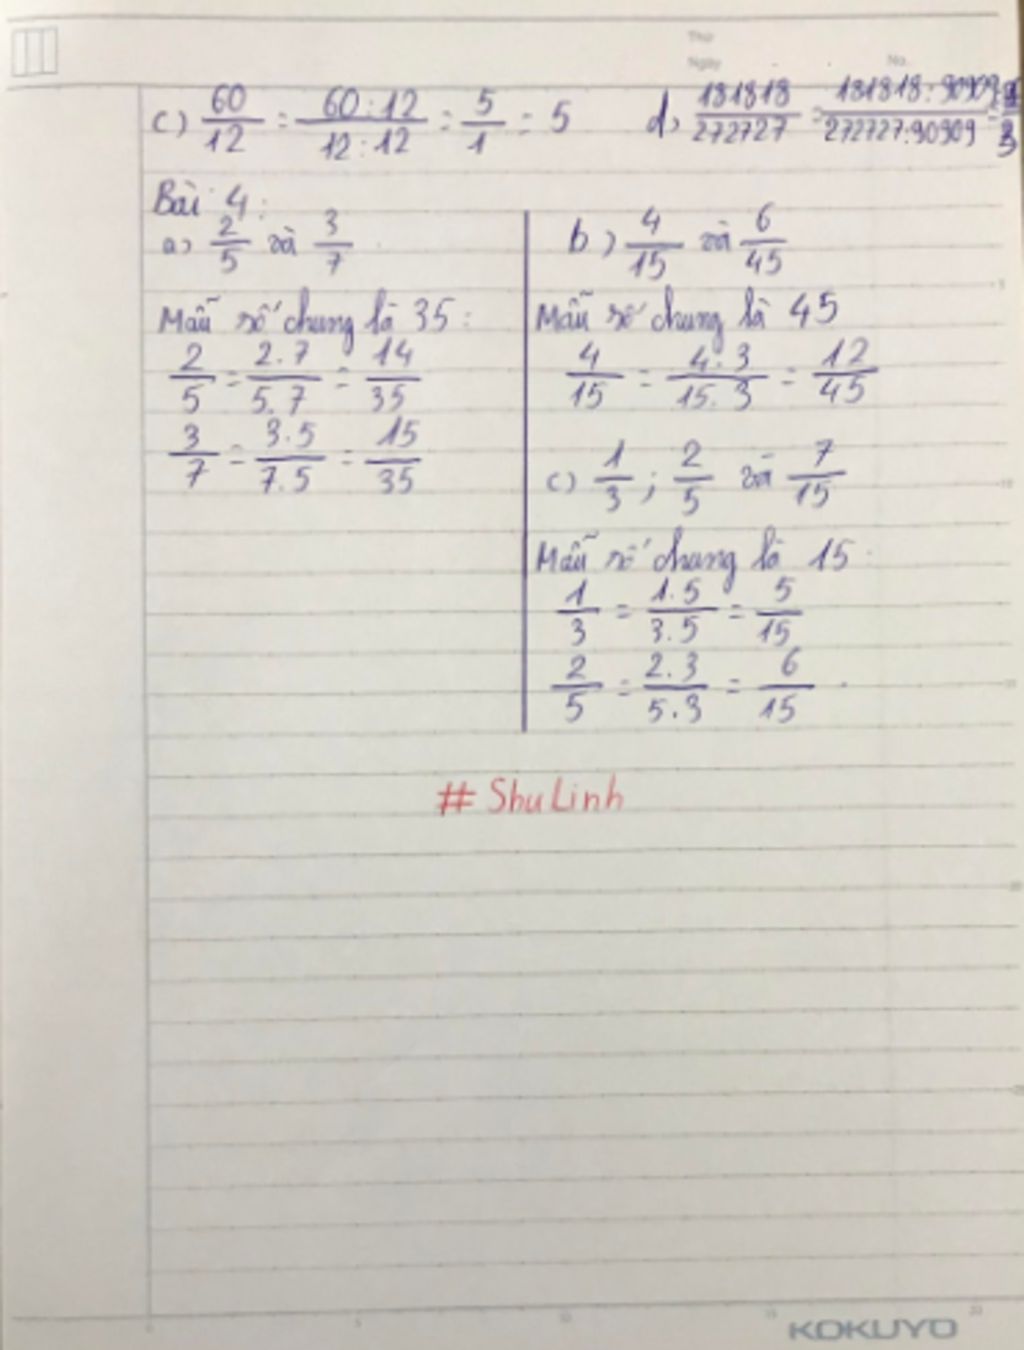 Thứ
Ngày No.
c) 60/12 = 60:12/12:12 = 5/1 = 5 d) 181818/272727 = 181818:90909/272727:90909 = 2/3
Bài 4:
a) 2/5 và 3/7
Mẫu số chung là 35:
2/5 = 2.7/5.7 = 14/35
3/7 = 3.5/7.5 = 15/35
b) 4/15 và 6/45
Mẫu số chung là 45
4/15 = 4.3/15.3 = 12/45
c) 1/3 ; 2/5 và 7/15
Mẫu số chung là 15
1/3 = 1.5/3.5 = 5/15
2/5 = 2.3/5.3 = 6/15
# ShuLinh
KOKUYO